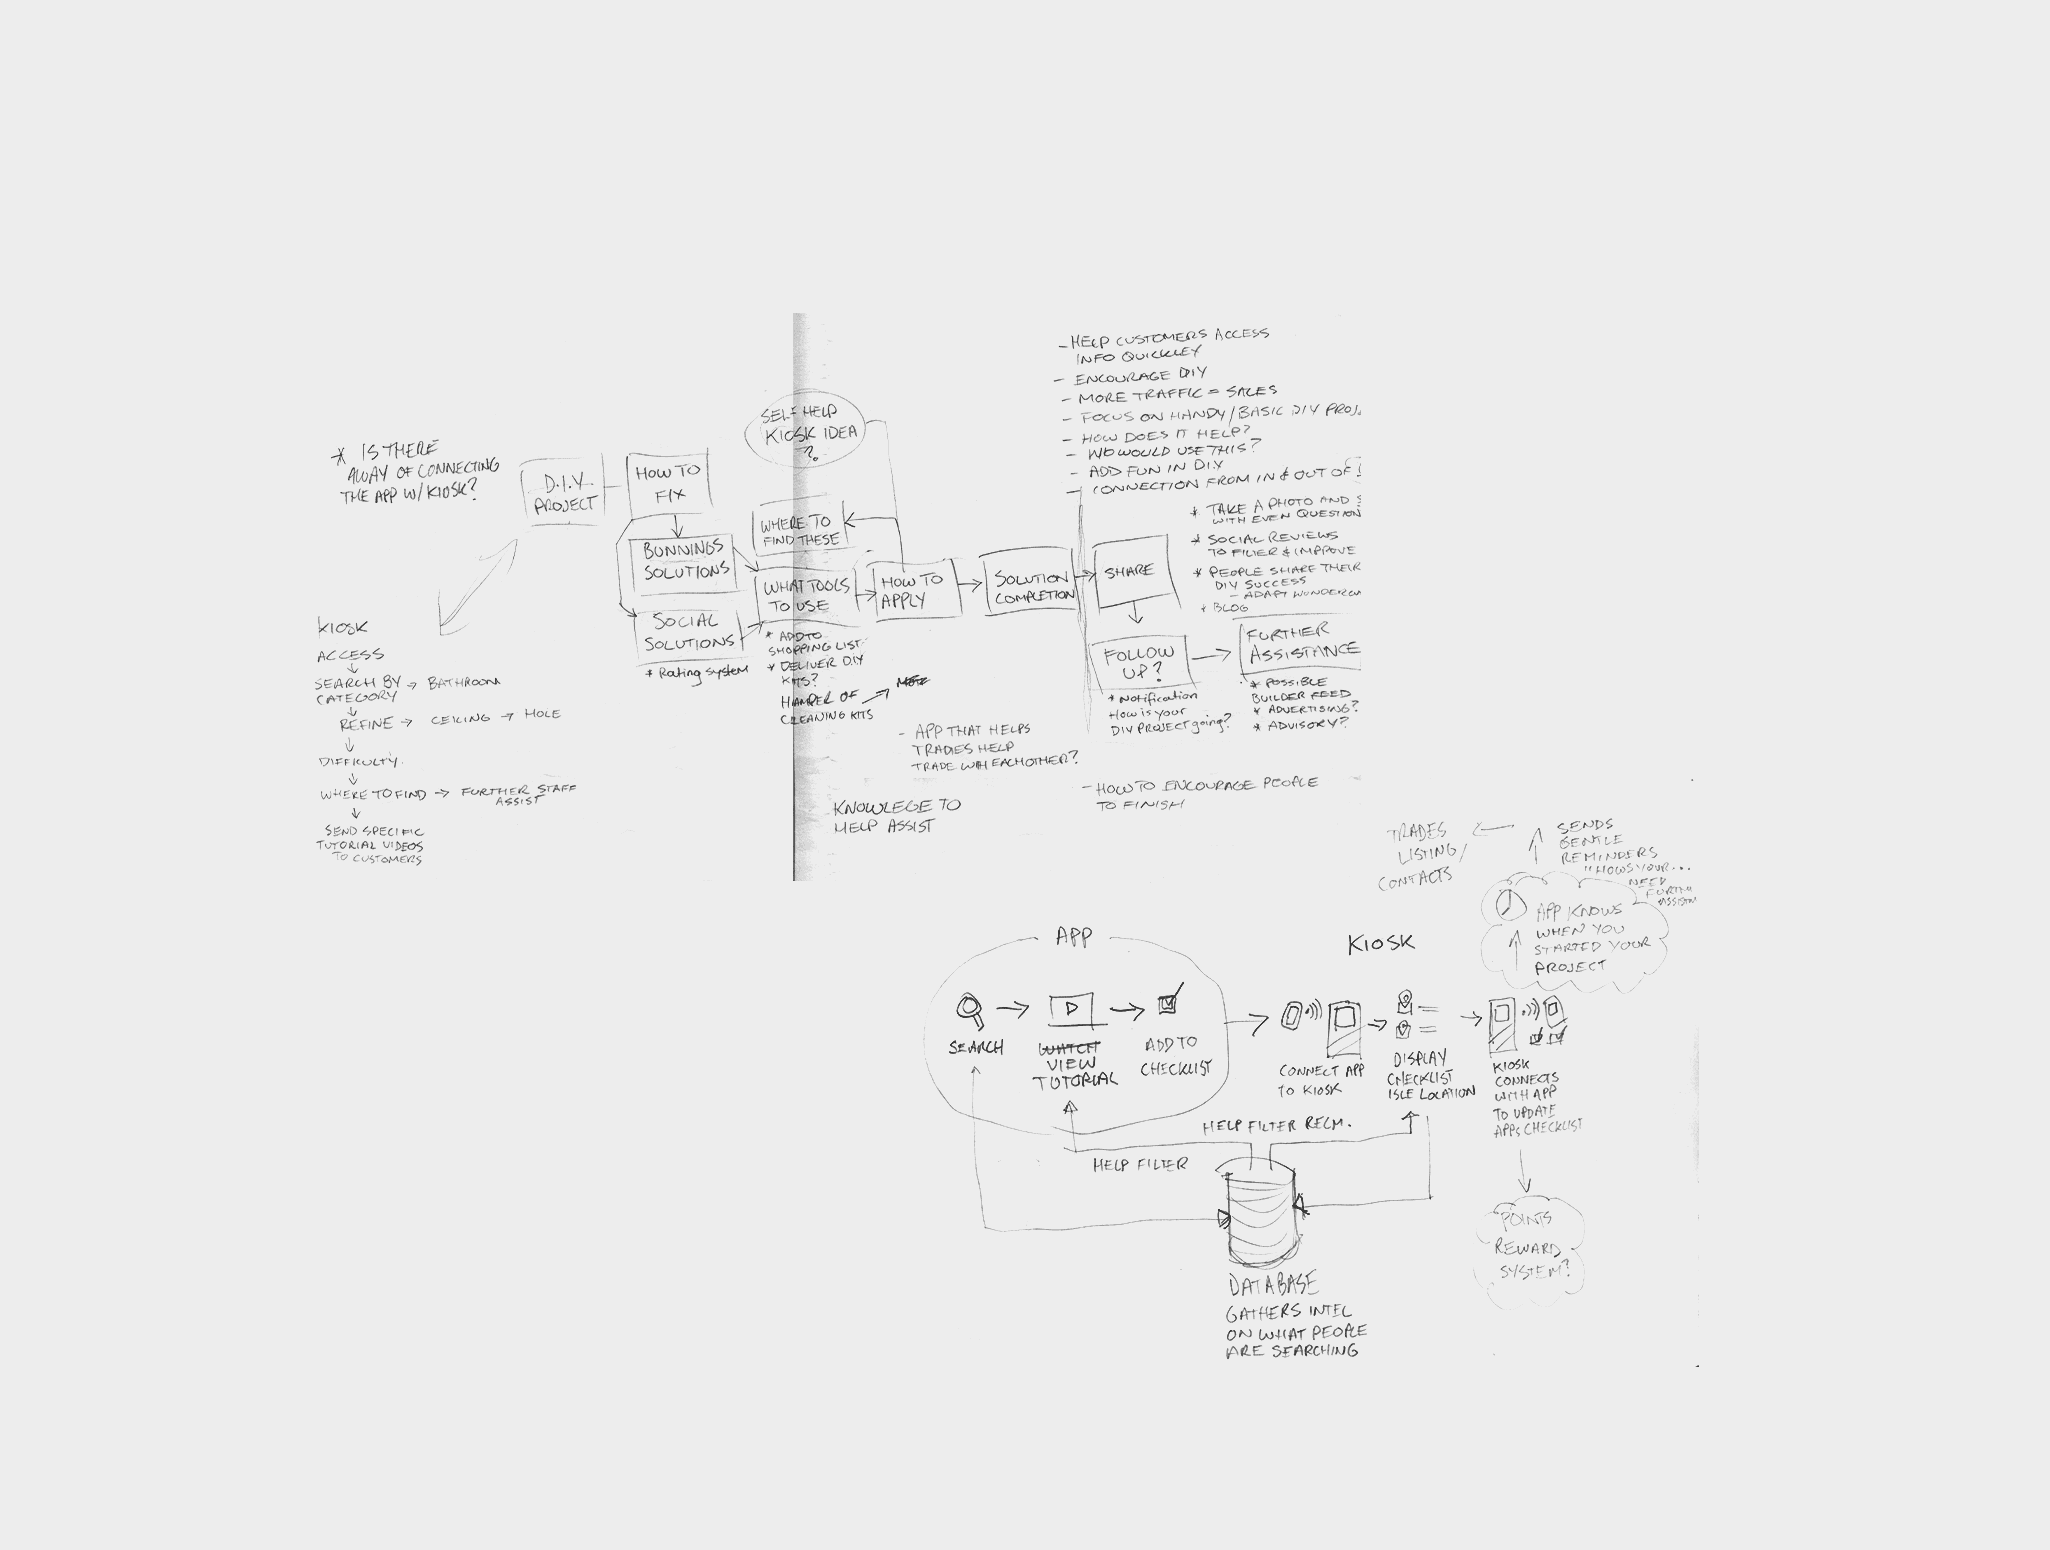 * IS THERE
AWAY OF CONNECTING
THE APP W/KIOSK?
D.I.Y
PROJECT
HOW TO
FIX
BUNNINGS
SOLUTIONS
SOCIAL
SOLUTIONS
* Rating system
SELF HELP
KIOSK IDEA
?
WHERE TO
FIND THESE
WHAT TOOLS
TO USE
* ADD TO
SHOPPING LIST
* DELIVER D.I.Y
KITS?
HAMPER OF
CLEANING KITS
HOW TO
APPLY
SOLUTION
COMPLETION
SHARE
FOLLOW
UP?
* Notification
How is your
DIY PROJECT going?
FURTHER
ASSISTANCE
* POSSIBLE
BUILDER FEED
* ADVERTISING?
* ADVISORY?
- HELP CUSTOMERS ACCESS
INFO QUICKLEY
- ENCOURAGE DIY
- MORE TRAFFIC = SALES
- FOCUS ON HANDY/BASIC DIY PROJ
- HOW DOES IT HELP?
- WHO WOULD USE THIS?
- ADD FUN IN D.I.Y
- CONNECTION FROM IN & OUT OF
* TAKE A PHOTO AND
WITH EVEN QUESTION
* SOCIAL REVIEWS
TO FILTER & IMPROVE
* PEOPLE SHARE THEIR
DIY SUCCESS
- ADAPT
* BLOG
KIOSK
ACCESS
SEARCH BY → BATHROOM
CATEGORY
REFINE → CEILING → HOLE
DIFFICULTY.
WHERE TO FIND → FURTHER STAFF
ASSIST
SEND SPECIFIC
TUTORIAL VIDEOS
TO CUSTOMERS
- APP THAT HELPS
TRADIES HELP
TRADE WITH EACHOTHER?
KNOWLEGE TO
HELP ASSIST
- HOW TO ENCOURAGE PEOPLE
TO FINISH
TRADES
LISTING/
CONTACTS
SENDS
GENTLE
REMINDERS
"HOWS YOUR...
NEED
APP KNOWS
WHEN YOU
STARTED YOUR
PROJECT
APP
SEARCH
WATCH
VIEW
TUTORIAL
ADD TO
CHECKLIST
KIOSK
CONNECT APP
TO KIOSK
DISPLAY
CHECKLIST
ISLE LOCATION
KIOSK
CONNECTS
WITH APP
TO UPDATE
APPS CHECKLIST
HELP FILTER RECM.
HELP FILTER
DATABASE
GATHERS INTEL
ON WHAT PEOPLE
ARE SEARCHING
POINTS
REWARD
SYSTEM?